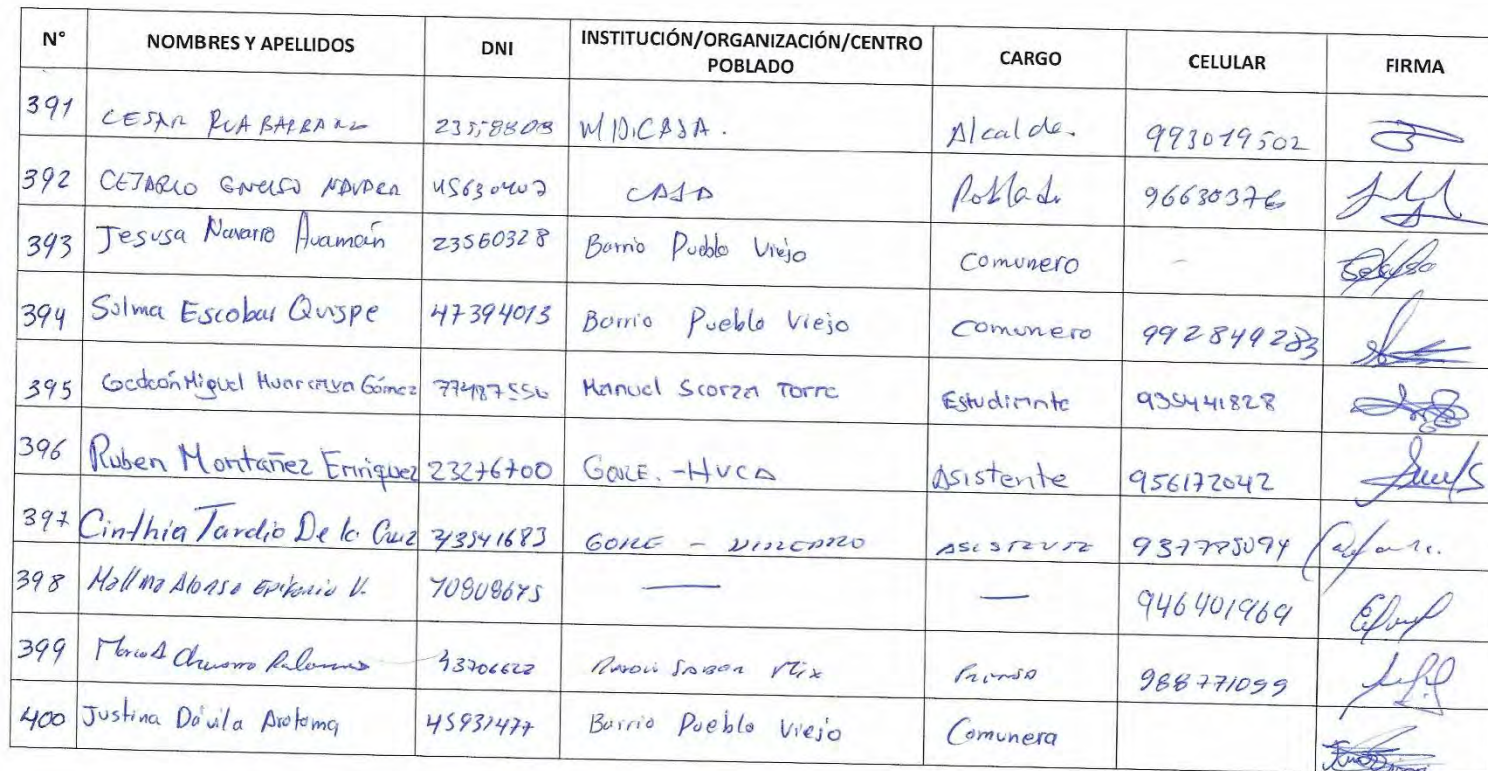 N° NOMBRES Y APELLIDOS DNI INSTITUCIÓN/ORGANIZACIÓN/CENTRO POBLADO CARGO CELULAR FIRMA
391 CESAR 23558803 Alcalde. 993019502
392 CASA Poblado 96630376
393 Jesusa Navarro Huamán 23560328 Barrio Pueblo Viejo Comunero -
394 Solma Escobar Quispe 47394013 Barrio Pueblo Viejo Comunero 992849283
395 Gedeón Miguel Huarcaya Gómez 77487556 Manuel Scorza Torre Estudiante 935441828
396 Ruben Montañez Enriquez 23276700 GORE.-HVCA Asistente 956172042
397 Cinthia Tardio De la Cruz 43541683 GORE - ASISTENTE 937795094
398 Alonso V. 70808675 — — 946401969
399 43706622 Prensa 988771099
400 Justina Dávila Arotoma 45931477 Barrio Pueblo Viejo Comunera